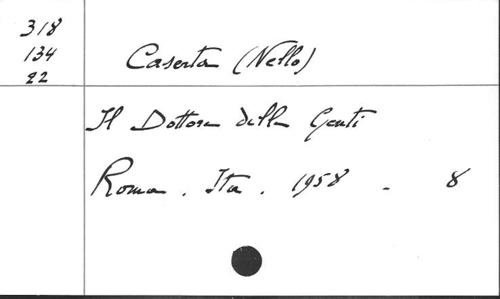 318
134
22
Caserta (Nello)
Il Dottore delle Genti
Roma. Ita. 1958 - 8